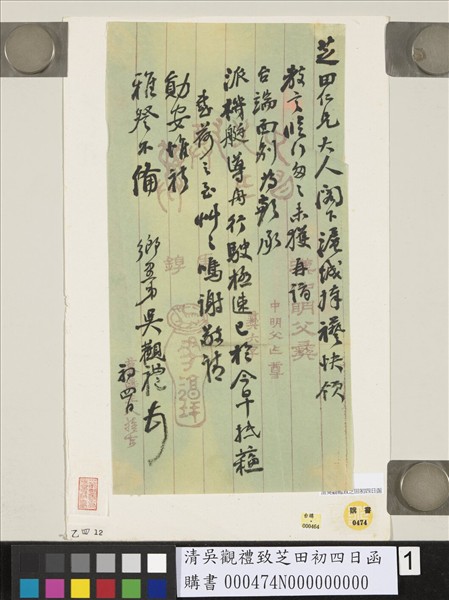 芝田仁兄大人閣下滬城掃襼快領
教言臨行匆匆未獲再詣
台端面別為歉承
派機艇導舟行駛極速已於今早抵蘇
感荷之至艸艸鳴謝敬請
勛安惟祈
雅詧不備
鄉愚弟吳觀禮頓
初四日
中明父乍
乙四12
000464
購書
0474
清吳觀禮致芝田初四日函
購書 000474N000000000
1